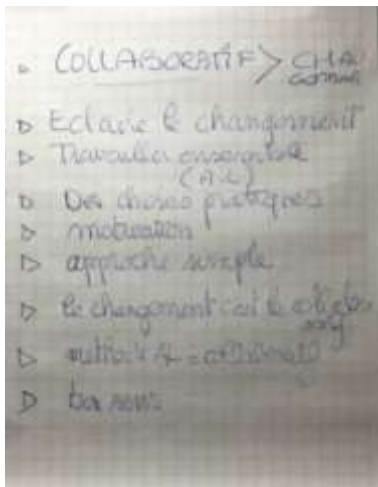 COLLABORATIF > CHA
Eclaire le changement
Travailler ensemble
Des choses pratiques
motivation
approche simple
le changement c'est le
methode AL =
bon sens